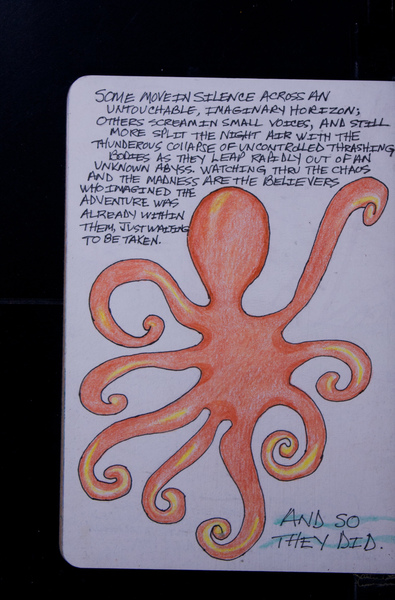 SOME MOVE IN SILENCE ACROSS AN
UNTOUCHABLE, IMAGINARY HORIZON;
OTHERS SCREAM IN SMALL VOICES, AND STILL
MORE SPLIT THE NIGHT AIR WITH THE
THUNDEROUS COLLAPSE OF UNCONTROLLED THRASHING
BODIES AS THEY LEAP RAPIDLY OUT OF AN
UNKNOWN ABYSS. WATCHING THRU THE CHAOS
AND THE MADNESS ARE THE BELIEVERS
WHO IMAGINED THE
ADVENTURE WAS
ALREADY WITHIN
THEM, JUST WAITING
TO BE TAKEN.
AND SO
THEY DID.